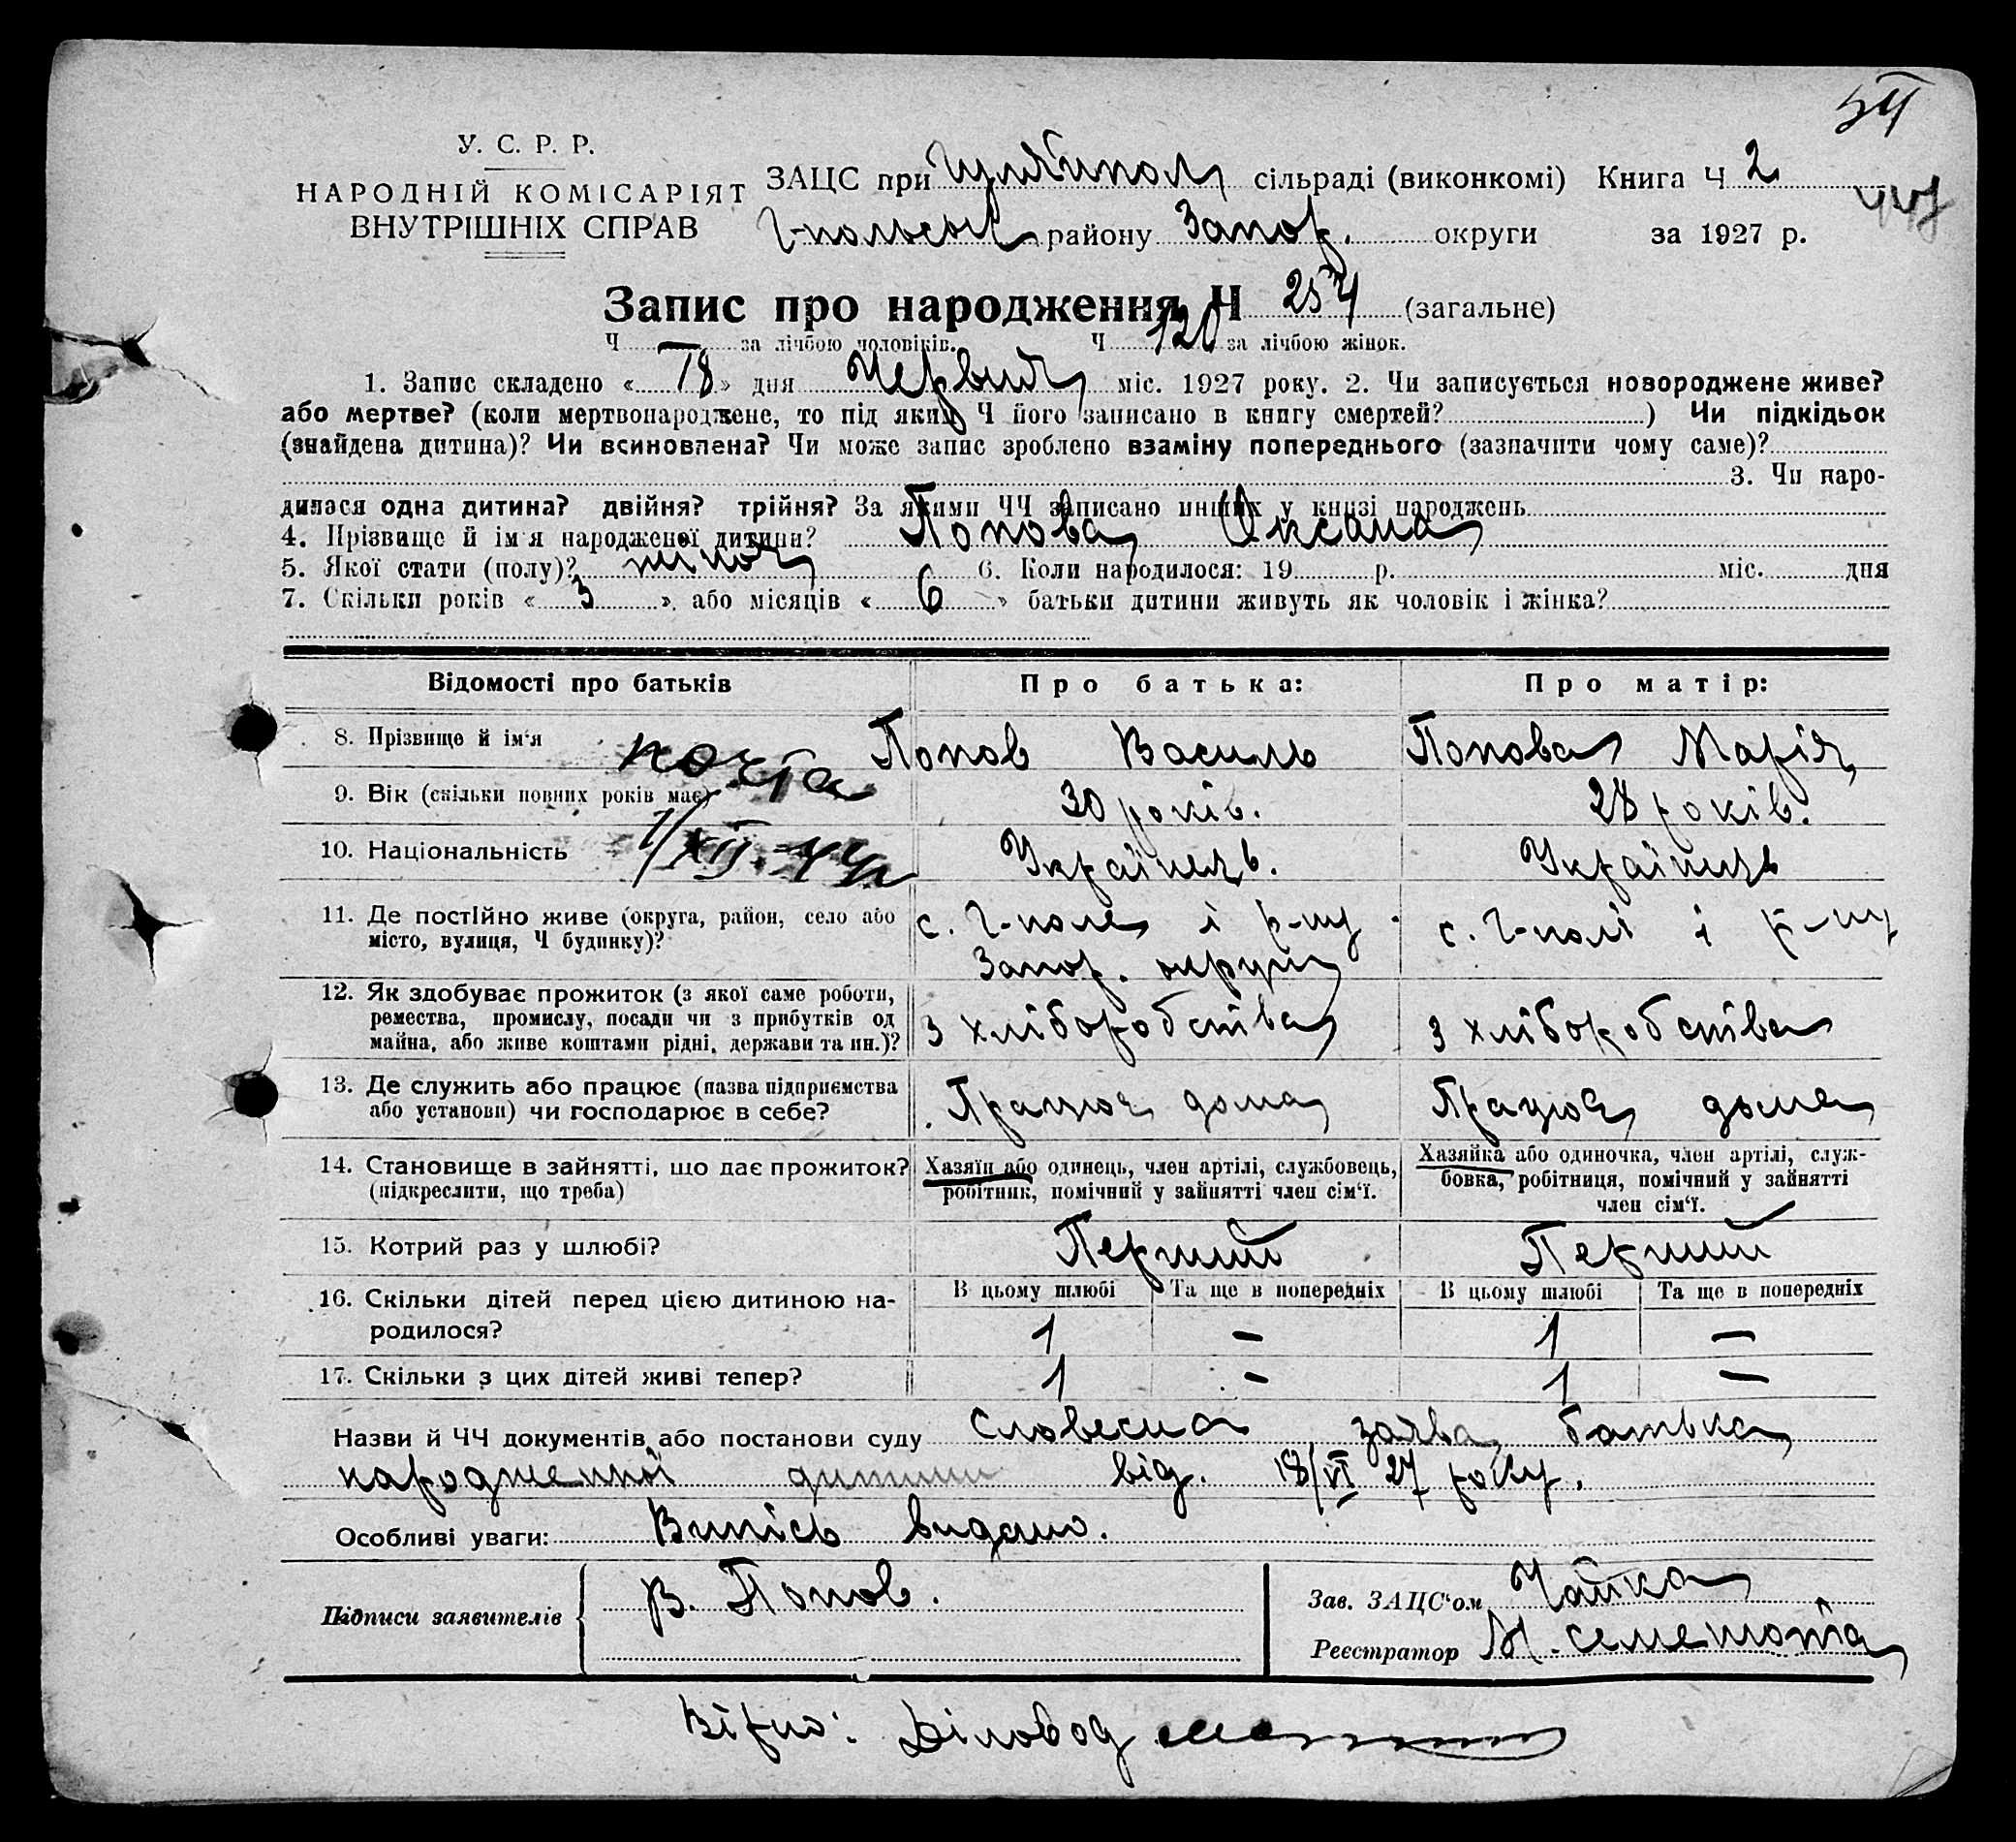 54
У. С. Р. Р.
НАРОДНІЙ КОМІСАРІЯТ
ВНУТРІШНІХ СПРАВ
ЗАЦС при Гуляйпол сільраді (виконкомі) Книга Ч 2
Г-польськ району Запор. округи за 1927 р.
Запис про народження Ч 254 (загальне)
Ч — за лічбою чоловіків. Ч 120 за лічбою жінок.
1. Запис складено « 18 » дня Червня міс. 1927 року. 2. Чи записується новороджене живе?
або мертве? (коли мертвонароджене, то під яким Ч його записано в книгу смертей? ) Чи підкідьок
(знайдена дитина)? Чи всиновлена? Чи може запис зроблено взаміну попереднього (зазначити чому саме)?
3. Чи наро-
дилася одна дитина? двійня? трійня? За якими ЧЧ записано инших у книзі народжень
4. Прізвище й ім'я народженої дитини? Попова Оксана
5. Якої стати (полу)? жіноч 6. Коли народилося: 19 р. міс. дня
7. Скільки років « 3 » або місяців « 6 » батьки дитини живуть як чоловік і жінка?
Відомості про батьків Про батька: Про матір:
8. Прізвище й ім'я Попов Василь Попова Марія
9. Вік (скільки повних років має) 30 років. 28 років.
10. Національність Українець. Українець
11. Де постійно живе (округа, район, село або місто, вулиця, Ч будинку)? с. Г-поле і р-ну Запор. округи с. Г-полі і р-ну
12. Як здобуває прожиток (з якої саме роботи, ремества, промислу, посади чи з прибутків од майна, або живе коштами рідні, держави та ин.)? з хліборобства з хліборобства
13. Де служить або працює (назва підприємства або установи) чи господарює в себе? Працює дома Працює дома
14. Становище в зайнятті, що дає прожиток? (підкреслити, що треба) Хазяїн або одинець, член артілі, службовець, робітник, помічний у зайнятті член сім'ї. Хазяйка або одиночка, член артілі, служ-бовка, робітниця, помічний у зайнятті член сім'ї.
15. Котрий раз у шлюбі? Перший Перший
16. Скільки дітей перед цією дитиною на-родилося? В цьому шлюбі Та ще в попередніх В цьому шлюбі Та ще в попередніх
1 — 1 —
17. Скільки з цих дітей живі тепер? 1 — 1 —
Назви й ЧЧ документів або постанови суду Словесна заява батька
народженної дитини від. 18/VI 27 року.
Особливі уваги: Випісь видано.
Підписи заявителів В. Попов.
Зав. ЗАЦС'ом Чайка
Реєстратор
Вірно: Діловод